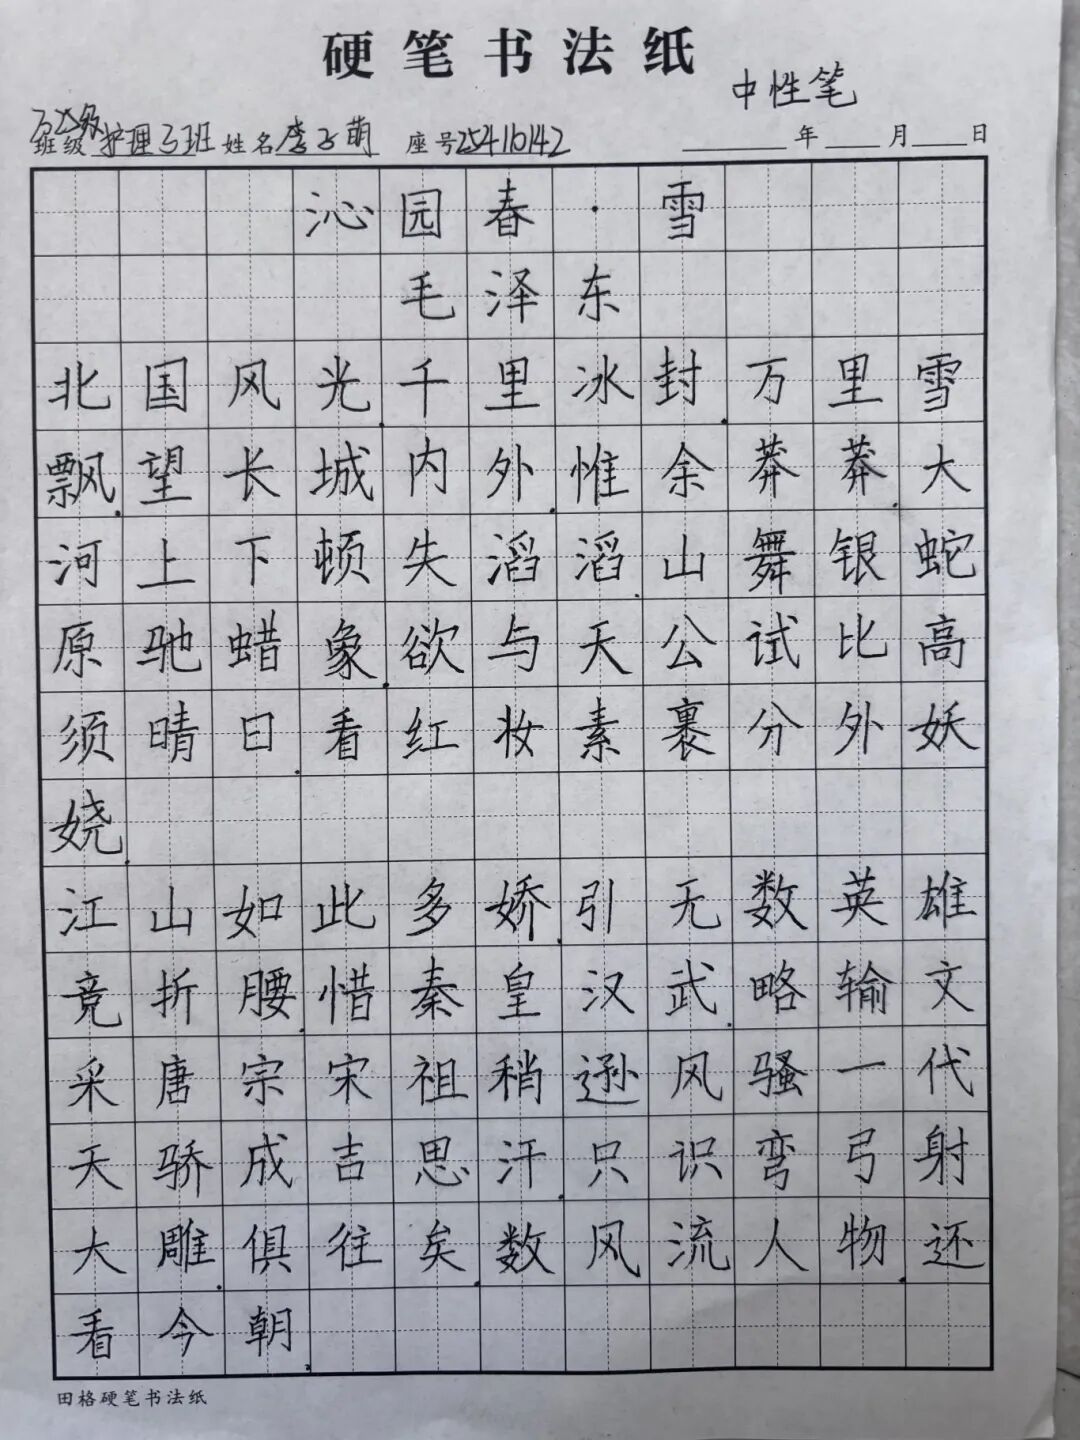 硬笔书法纸
中性笔
班级 护理3班 姓名 李子萌 座号 254110142 年 月 日
沁园春·雪
毛泽东
北国风光,千里冰封,万里雪
飘,望长城内外,惟余莽莽,大
河上下顿失滔滔,山舞银蛇
原驰蜡象,欲与天公试比高
须晴日,看红妆素裹分外妖
娆,
江山如此多娇,引无数英雄
竞折腰,惜秦皇汉武,略输文
采唐宗宋祖稍逊风骚一代
天骄成吉思汗,只识弯弓射
大雕,俱往矣,数风流人物,还
看今朝,
田格硬笔书法纸